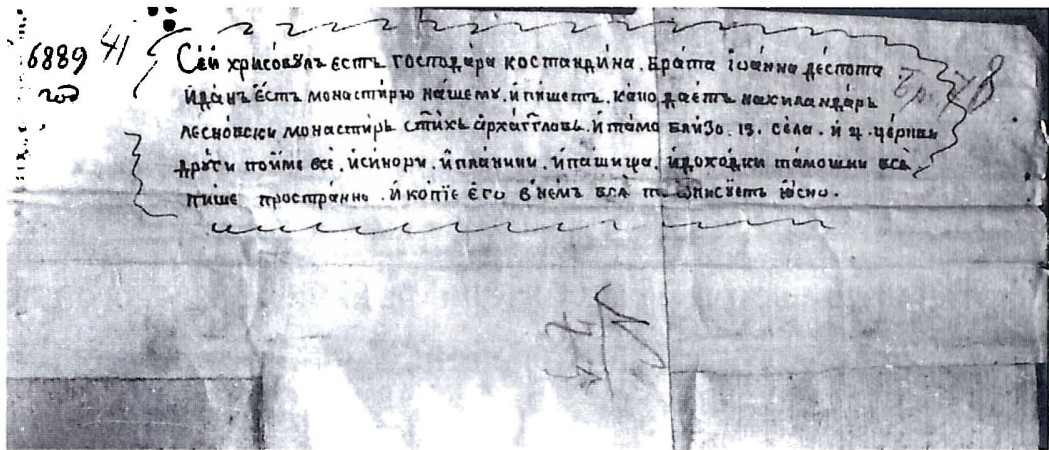 6889 41
год
Сей хрисовулъ естъ господара костандина. брата їѡанна деспота
Бр. 48
и данъ естъ монастирю нашему. и пишетъ. како даетъ на хиландарь
лесновски монастирь ст҃ихъ архаг҃гловь. и тамо близо. 13. села. и ц. церкви
други поиме все. и синори. и планини. и пашища. и доходки тамошни вся
пише пространно. и копїе его в немъ вся писуетъ ясно.